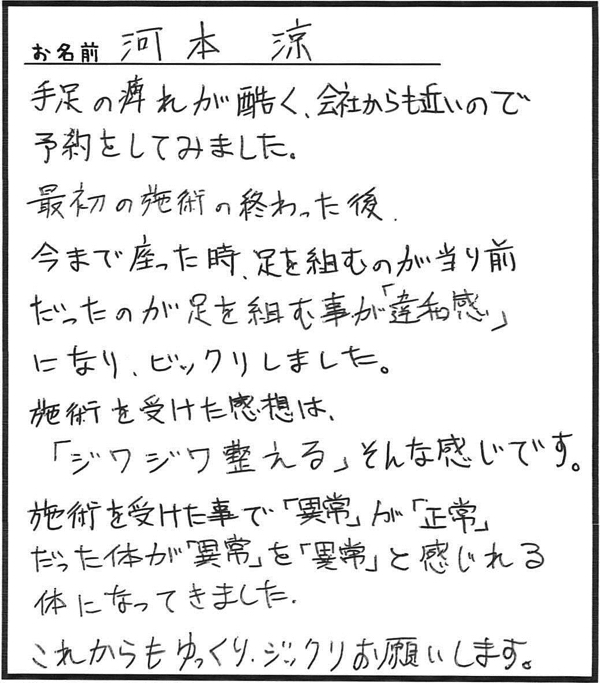 お名前 河本 涼
手足の痺れが酷く、会社からも近いので
予約をしてみました。
最初の施術の終わった後、
今まで座った時、足を組むのが当り前
だったのが足を組む事が「違和感」
になり、ビックリしました。
施術を受けた感想は、
「ジワジワ整える」そんな感じです。
施術を受けた事で「異常」が「正常」
だった体が「異常」を「異常」と感じれる
体になってきました。
これからもゆっくり、ジックリお願いします。